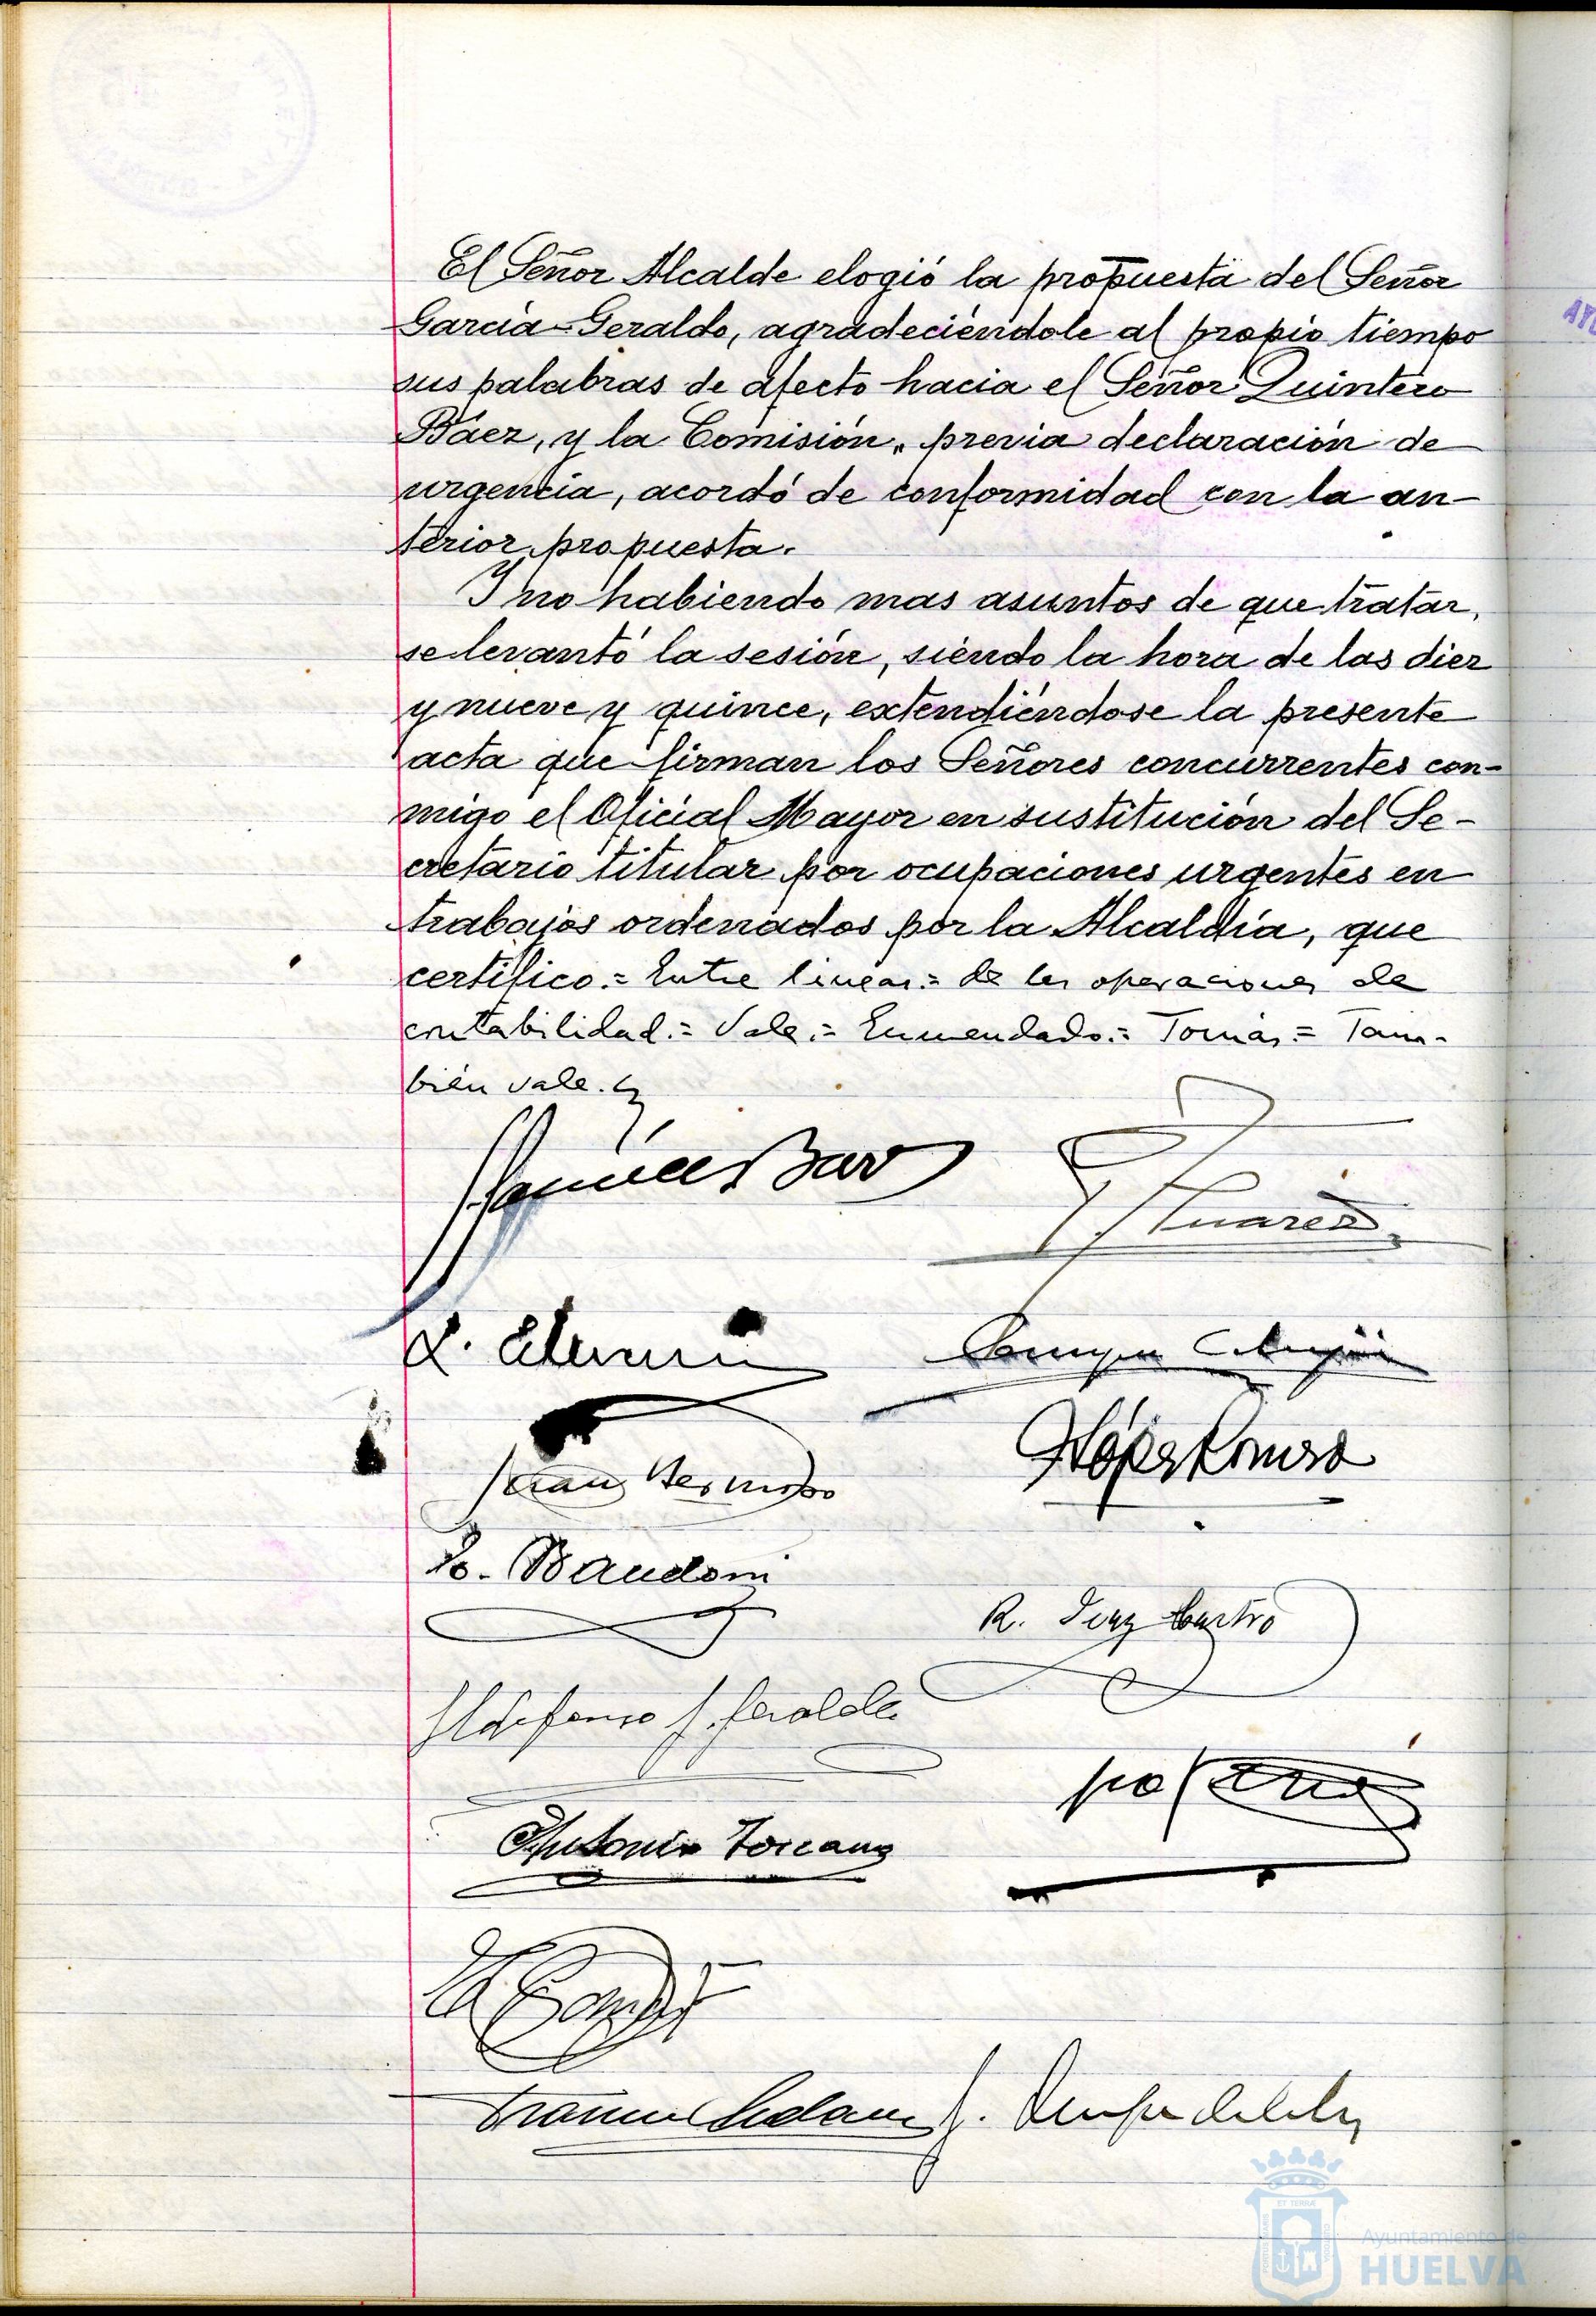 El Señor Alcalde elogió la propuesta del Señor
García-Geraldo, agradeciéndole al propio tiempo
sus palabras de afecto hacia el Señor Quintero
Báez, y la Comisión, previa declaración de
urgencia, acordó de conformidad con la an-
terior propuesta.
Y no habiendo mas asuntos de que tratar,
se levantó la sesión, siendo la hora de las diez
y nueve y quince, extendiéndose la presente
acta que firman los Señores concurrentes con-
migo el Oficial Mayor en sustitución del Se-
cretario titular por ocupaciones urgentes en
trabajos ordenados por la Alcaldía, que
certifico.= Entre lineas.= de las operaciones de
contabilidad.= Vale.= Enmendado.= Tomás.= Tam-
bién vale.
Suarez
R. Diaz Castro
Ildefonso G. Geraldo
Antonio Toscano
Ayuntamiento de
HUELVA